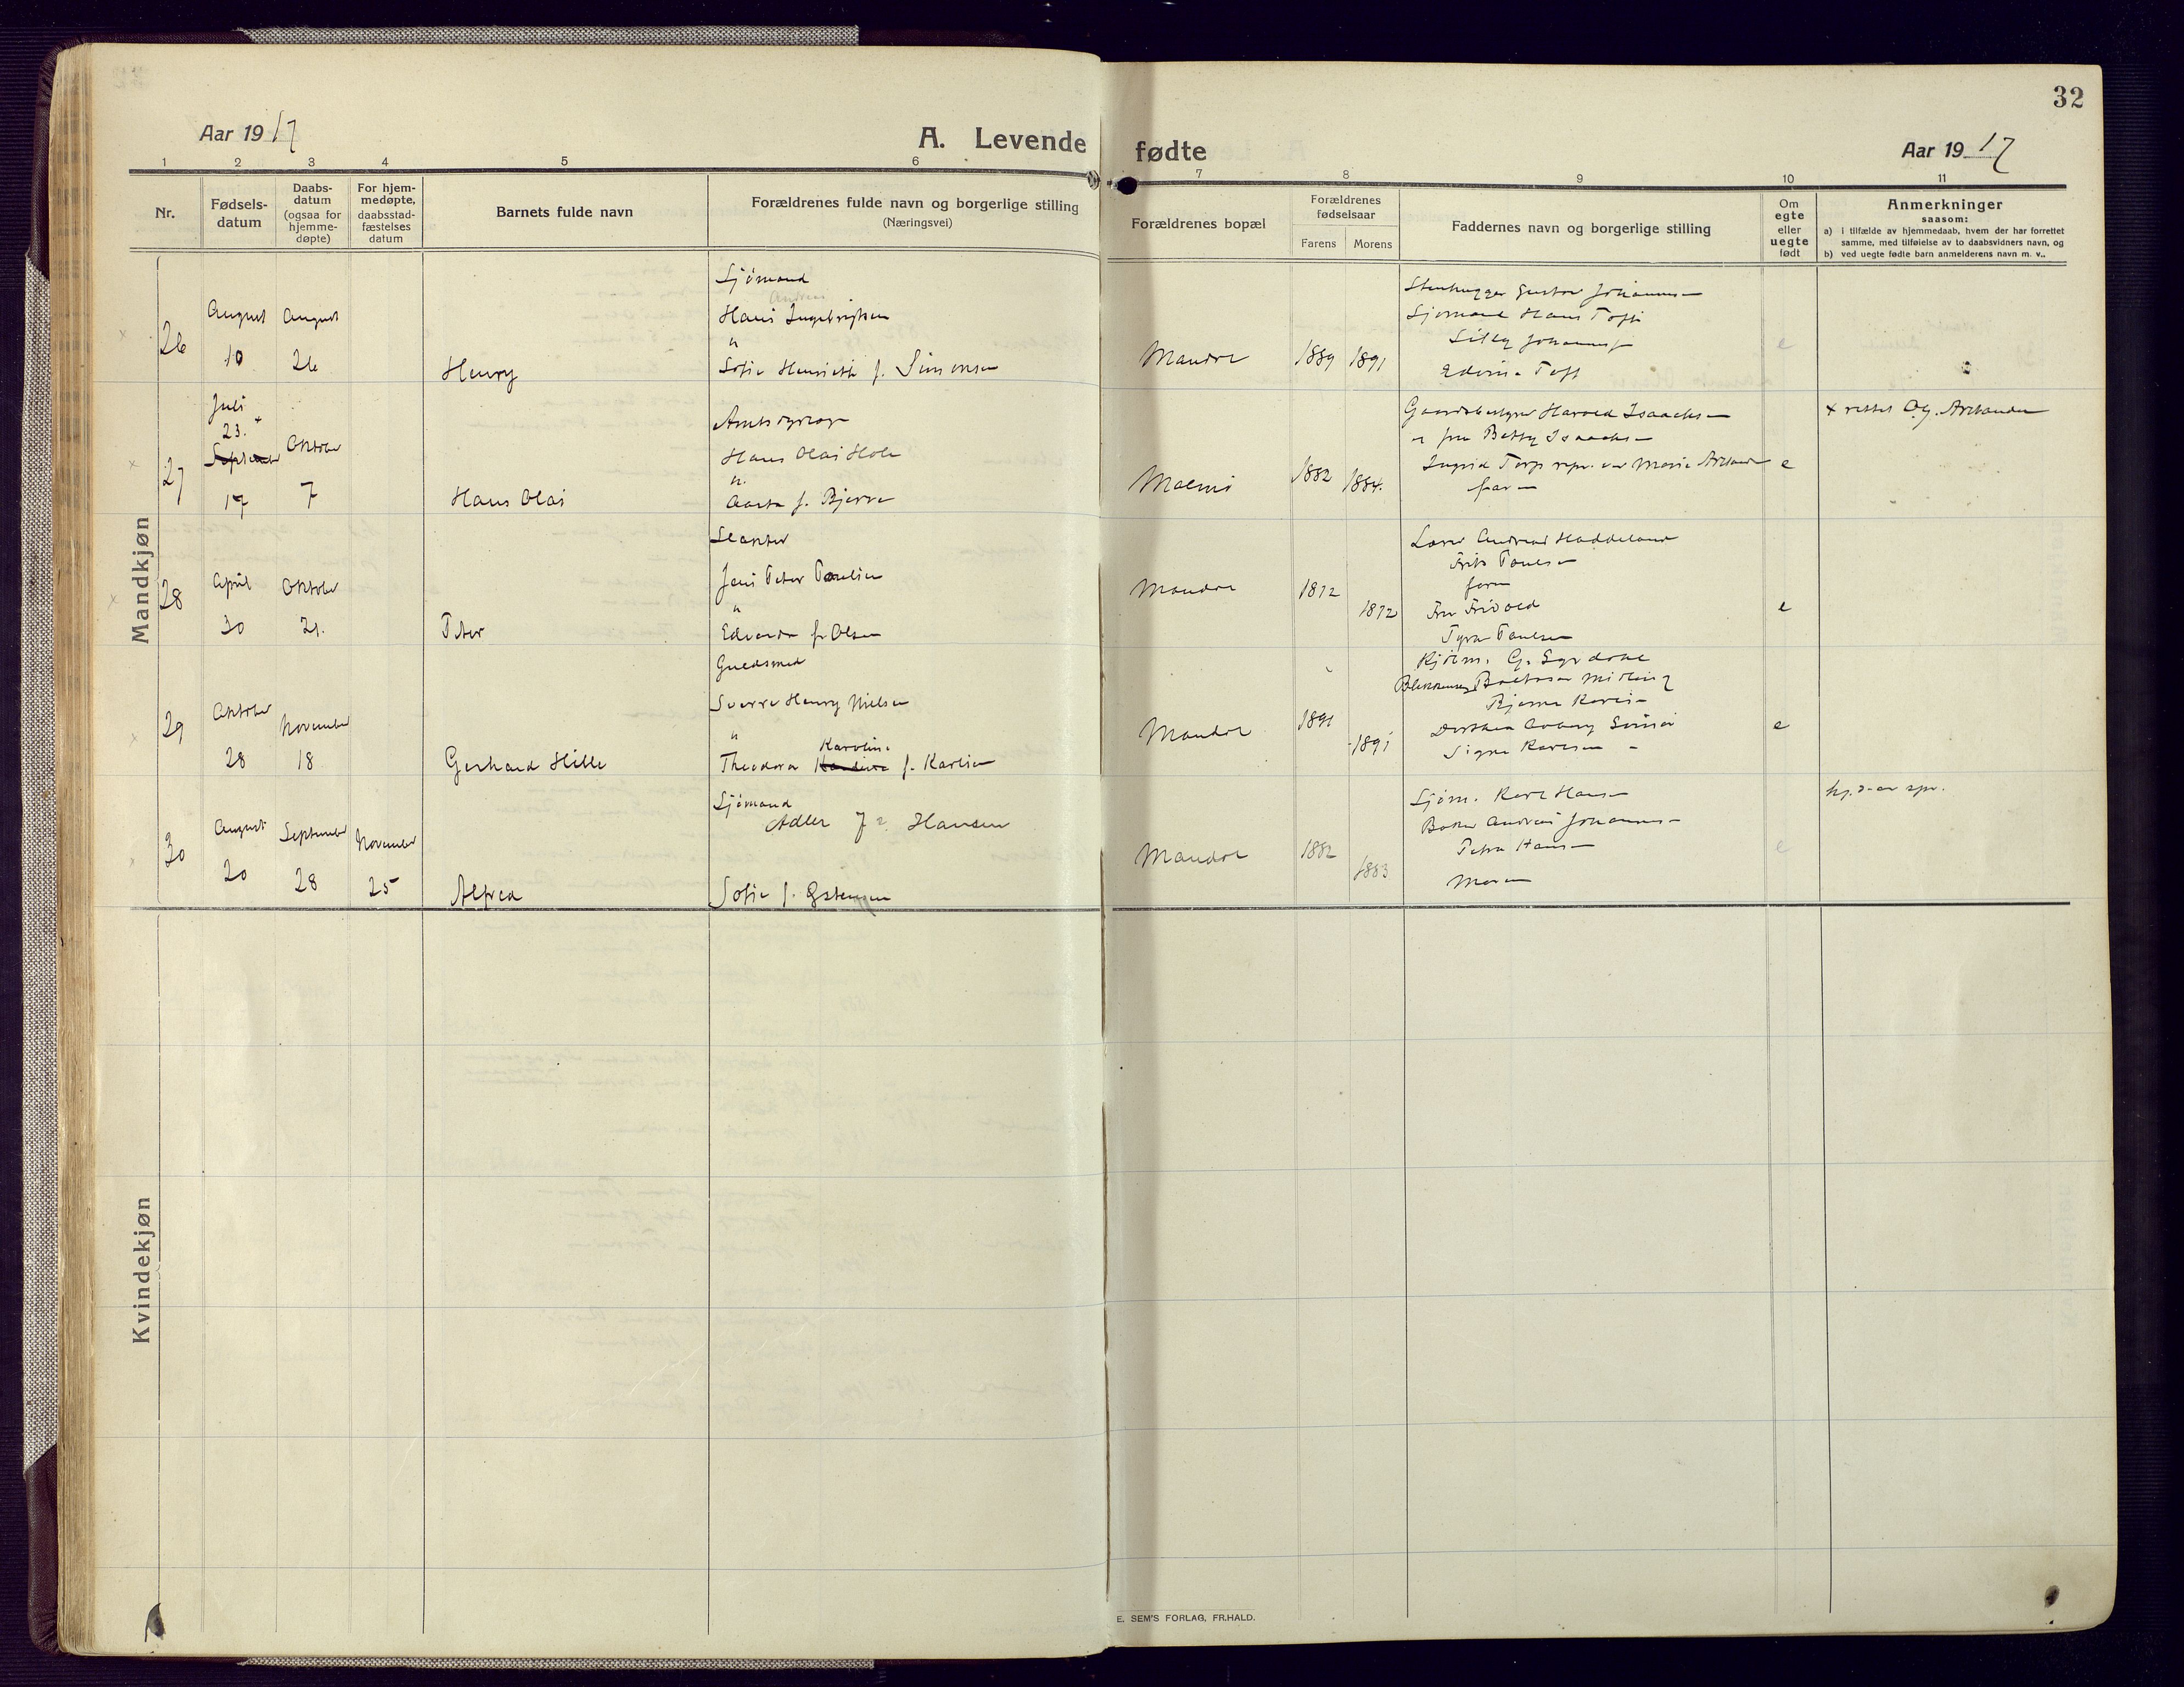 32
Aar 1917
A. Levende fødte
Aar 1917
1 2 3 4 5 6 7 8 9 10 11
Nr.
Fødsels-
datum
Daabs-
datum
(ogsaa for
hjemme-
døpte)
For hjem-
medøpte,
daabsstad-
fæstelses
datum
Barnets fulde navn
Forældrenes fulde navn og borgerlige stilling
(Næringsvei)
Forældrenes bopæl
Forældrenes
fødselsaar
Farens Morens
Faddernes navn og borgerlige stilling
Om
egte
eller
uegte
født
Anmerkninger
saasom:
a) i tilfælde av hjemmedaab, hvem der har forrettet
samme, med tilføielse av to daabsvidners navn, og
b) ved uegte fødte barn anmelderens navn m. v..
Mandkjøn
26
August
10
August
26
Henry
Sjømand
Andreas
Hans Ingebrigtsen
"
Sofie Henriette f. Simonsen
Mandal
1889
1891
Stenhugger Gustav Johannesen
Sjømand Hans Toft
Lilly Johannesen
Edvine Toft
e
27
Juli
23. +
September
17
Oktober
7
Hans Olai
Hans Olai Holm
"
Aasta f. Bjerre
Malmø
1882
1884.
Harald Isaachsen
fru Betty Isaachsen
Ingrid Torp repr. ved Marie
faren
e
+ rettet
28
April
30
Oktober
21.
Peter
Slakter
Jens Peter Paulsen
"
Edvarda f. Olsen
Mandal
1872
1872
Lærer Andreas Haddeland
Frits Paulsen
faren
Fru
Tyra Paulsen
e
29
Oktober
28
November
18
Gerhard Hille
Guldsmed
Sverre Henry Nielsen
"
Karoline
Theodora f. Karlsen
Mandal
1891
1891
Kjøbm. G. Syrdahl
Bjarne Karlsen
Signe Karlsen
e
30
August
20
September
28
November
25
Alfred
Sjømand
Adler Hansen
Sofie f.
Mandal
1882
1883
Sjøm. Karl Hansen
Baker Andreas Johannesen
Petra Hansen
Moren
e
Kvindekjøn
E. SEM'S FORLAG, FR.HALD.